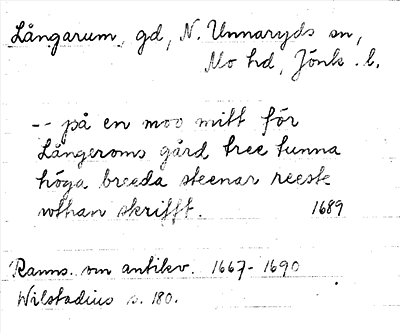 Långarum, gd, N. Unnaryds sn,
Mo hd, Jönk. l.
-- på en moo mitt för
Långeroms gård tree tunna
höga breeda steenar reeste
uthan skrifft. 1689
Ranns. om antikv. 1667-1690
Wilstadius s. 180.